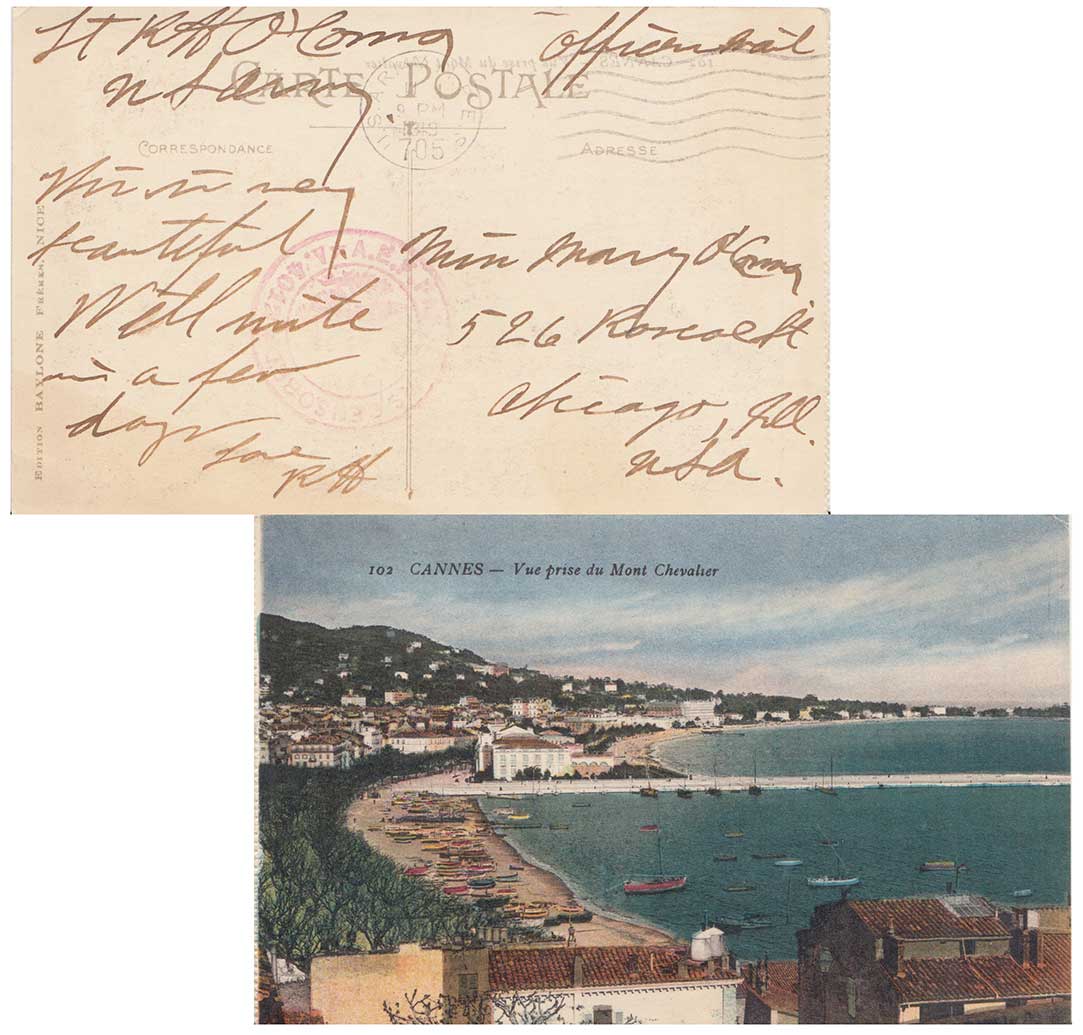 Lt RH O'Connor Officer mail
U S Army
CARTE POSTALE
U.S. ARMY SER
9 PM
1919
705
CORRESPONDANCE ADRESSE
This is very
beautiful
Will write
in a few
days
Love
RH
Miss Mary O'Connor
526 Roscoe St
Chicago, Ill.
USA.
A.E.F.
EDITION BAYLONE FRÈRES, NICE
102 CANNES — Vue prise du Mont Chevalier